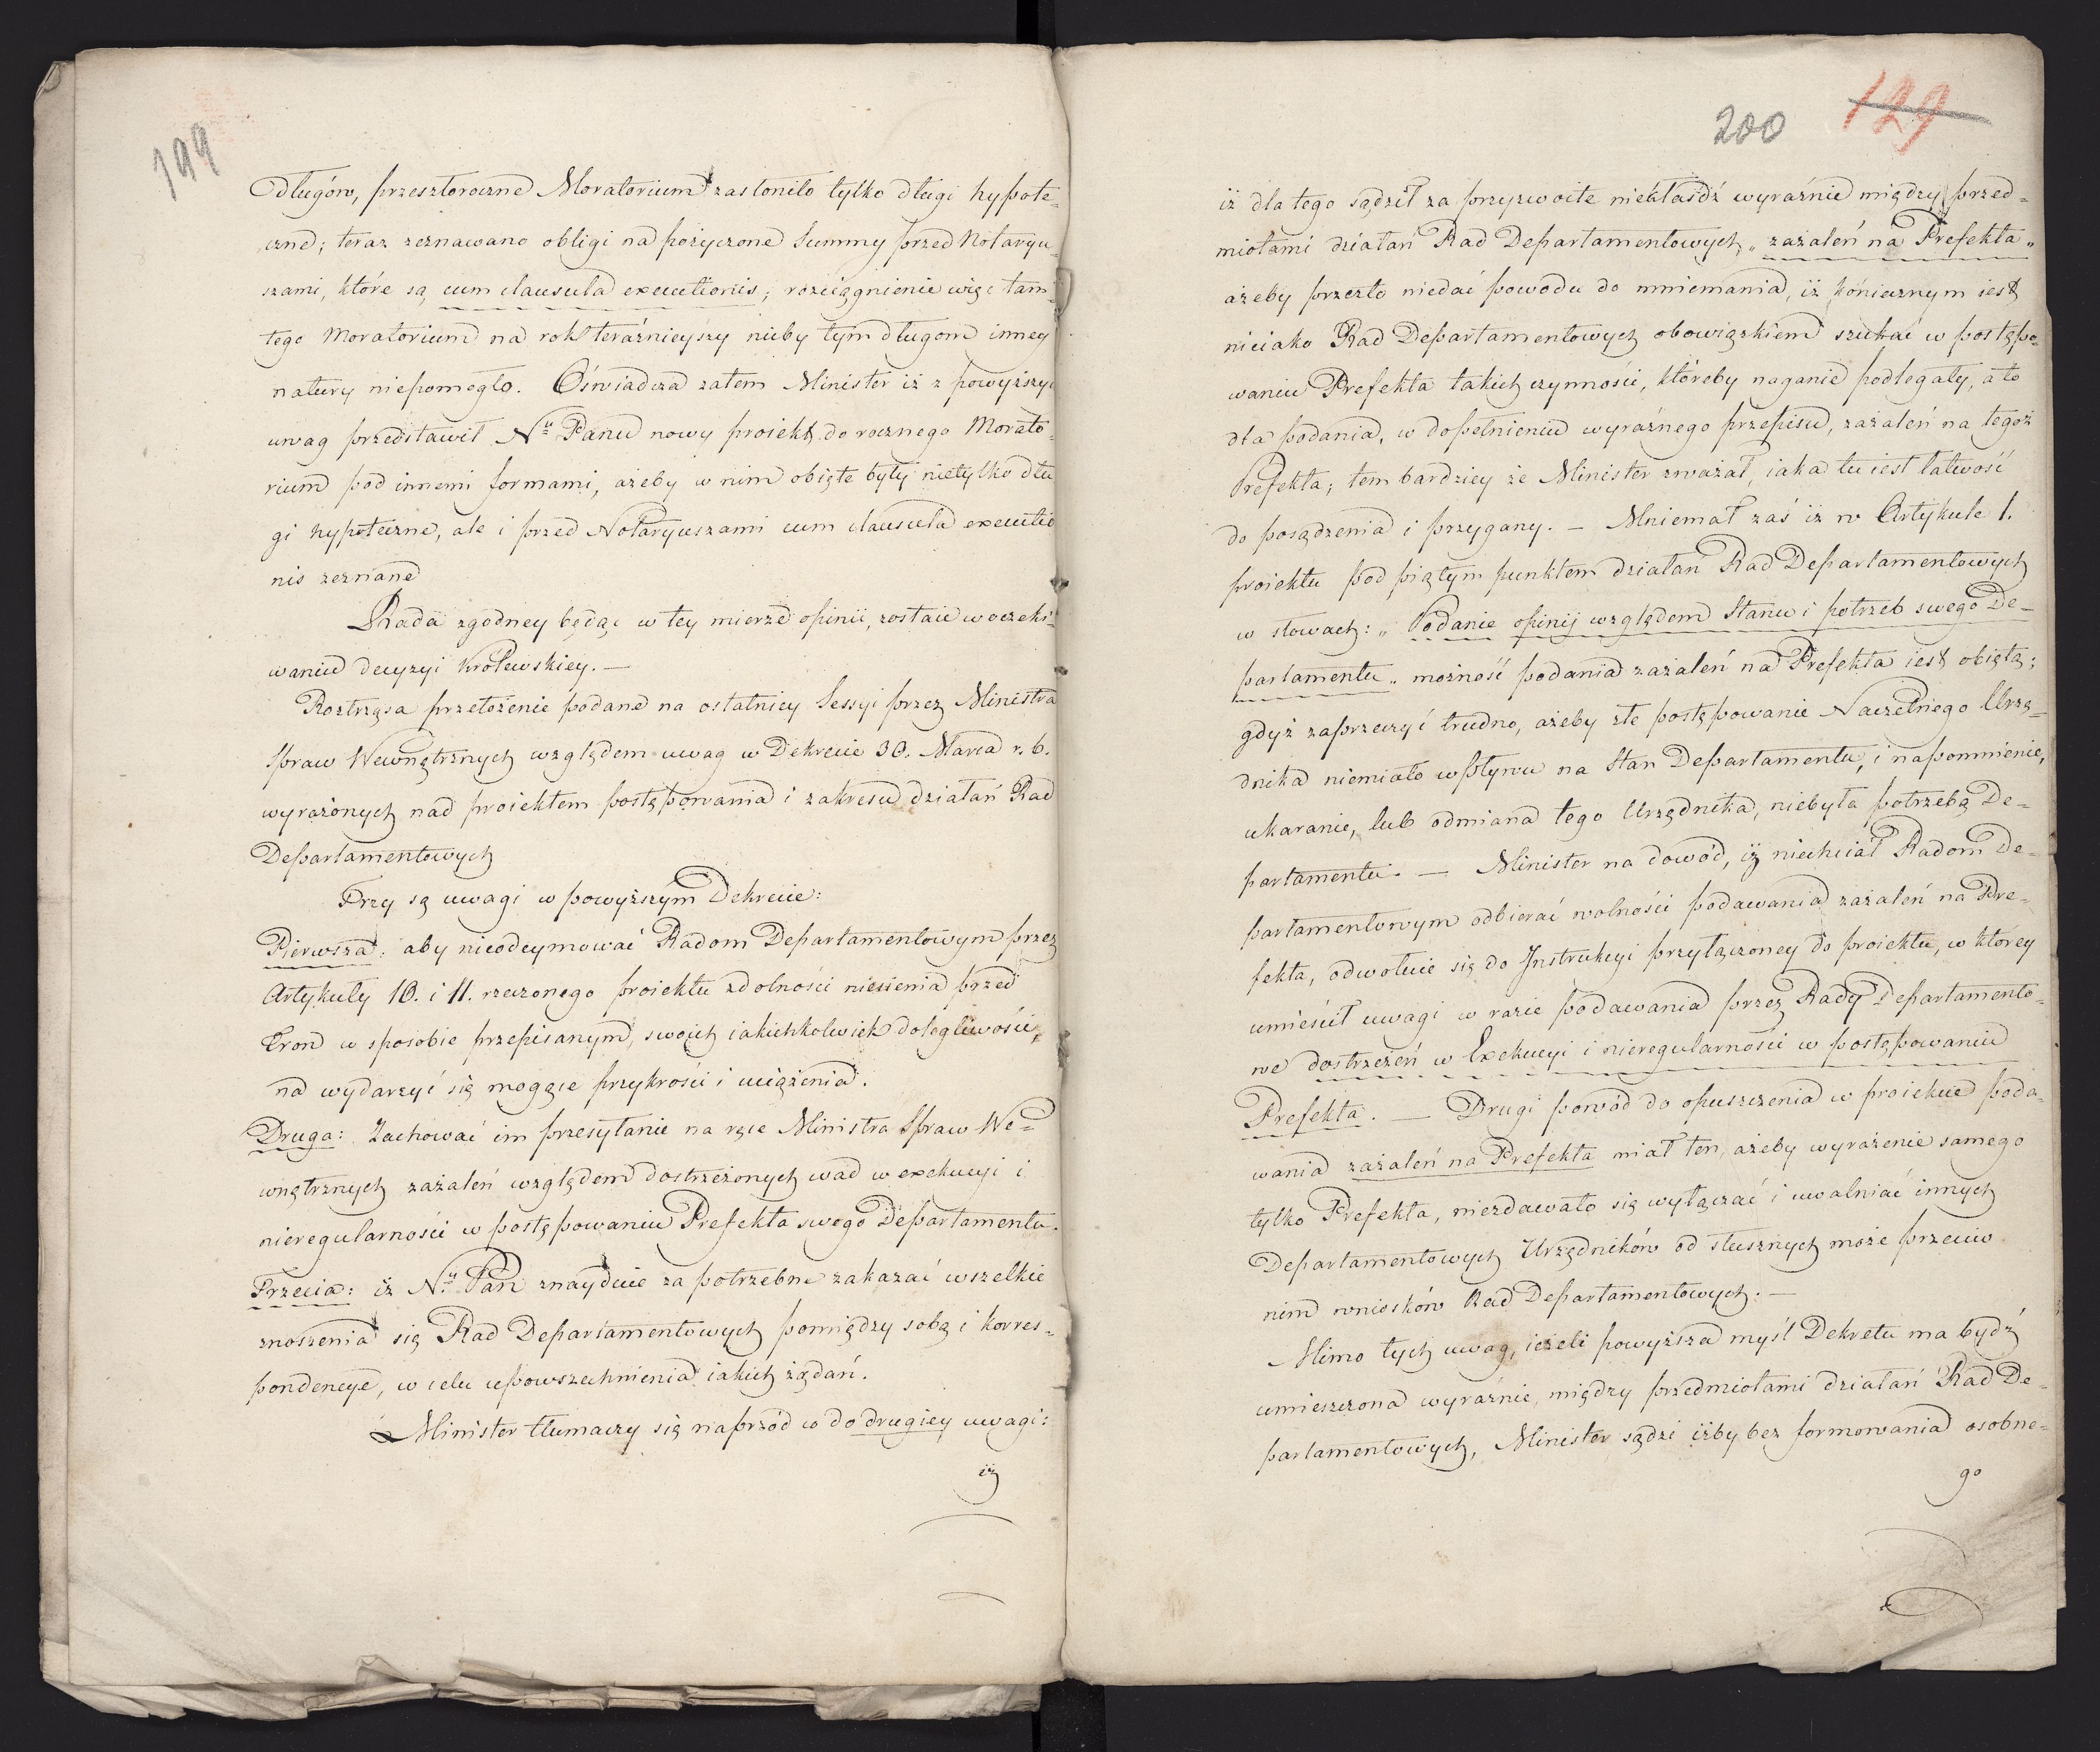 199
długów, przeszłoroczne Moratorium zasłoniło tylko długi hypote=
czne; teraz zeznawano obligi na pożyczone Summy przed Notaryu=
szami, które są cum clausula executionis; rozciągnienie więc tam=
tego Moratorium na rok teraźnieyszy niby tym długom inney
natury niepomogło. Oświadcza zatem Minister iż z powyższych
uwag przedstawił Nu Panu nowy proiekt do rocznego Morato=
rium pod innemi formami, ażeby w nim obięte były nietylko dłu
gi hypoteczne, ale i przed Notaryuszami cum clausula executio
nis zeznane
Rada zgodney będąc w tey mierze opinii, zostaie w oczeki=
waniu decyzyi Królewskiey. —
Roztrząsa przełożenie podane na ostatniey Sessyi przez Ministra
Spraw Wewnętrznych względem uwag w Dekrecie 30. Marca r. b.
wyrażonych nad proiektem postępowania i zakresu działań Rad
Departamentowych
Trzy są uwagi w powyższym Dekrecie:
Pierwsza: aby nieodeymować Radom Departamentowym przez
Artykuły 10. i 11. rzeczonego proiektu zdolności niesienia przed
Tron w sposobie przepisanym, swoich iakichkolwiek dolegliwości,
na wydarzyć się mogące przykrości i uciążenia.
Druga: Zachować im przesyłanie na ręce Ministra Spraw We=
wnętrznych zażaleń względem dostrzeżonych wad w exekucyi i
nieregularności w postępowaniu Prefekta swego Departamentu.
Trzecia: iż Ny Pan znayduie za potrzebne zakazać wszelkie
znoszenia się Rad Departamentowych pomiędzy sobą i korres=
pondencye, w celu upowszechnienia iakich żądań.
Minister tłumaczy się naprzód co do drugiey uwagi:
iż
200 129
iż dla tego sądził za przyzwoite niekłaśdź wyraźnie między przed=
miotami działań Rad Departamentowych, „zażaleń na Prefekta„
ażeby przezto niedać powodu do mniemania, iż koniecznym iest
nieiako Rad Departamentowych obowiązkiem szukać w postępo=
waniu Prefekta takich czynności, któreby naganie podlegały, a to
dla podania, w dopełnieniu wyraźnego przepisu, zażaleń na tegoż
Prefekta; tem bardziey że Minister zważał, iaka tu iest łatwość
do posądzenia i przygany. — Mniemał zaś iż w Artykule 1.
proiektu pod piątym punktem działań Rad Departamentowych
w słowach: „Podanie opinij względem Stanu i potrzeb swego De=
partamentu„ możność podania zażaleń na Prefekta iest obiętą;
gdyż zaprzeczyć trudno, ażeby złe postępowanie Naczelnego Urzę=
dnika niemiało wpływu na Stan Departamentu, i napomnienie,
ukaranie, lub odmiana tego Urzędnika, niebyła potrzebą De=
partamentu. — Minister na dowód, iż niechciał Radom De=
partamentowym odbierać wolności podawania zażaleń na Pre=
fekta, odwołuie się do Jnstrukcyi przyłączoney do proiektu, w którey
umieścił uwagi w razie podawania przez Rady Departamento=
we dostrzeżeń w Exekucyi i nieregularności w postępowaniu
Prefekta. — Drugi powód do opuszczenia w proiekcie poda=
wania zażaleń na Prefekta miał ten, ażeby wyrażenie samego
tylko Prefekta, niezdawało się wyłączać i uwalniać innych
Departamentowych Urzędników od słusznych może przeciw
nim wniosków Rad Departamentowych. —
Mimo tych uwag, ieżeli powyższa myśl Dekretu ma bydź
umieszczona wyraźnie między przedmiotami działań Rad De=
partamentowych, Minister sądzi iżby bez formowania osobne=
go